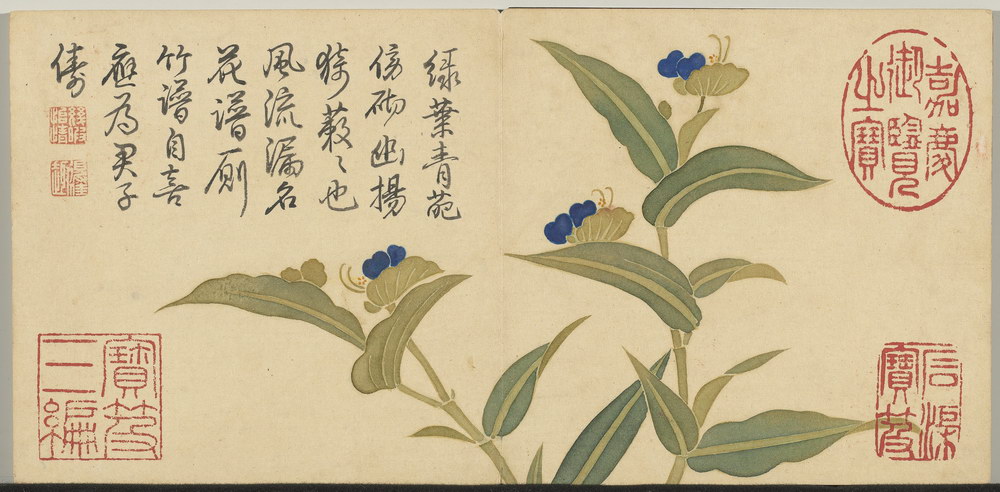 綠葉青葩
傍砌幽揚
猗蔌々也
風流漏名
花譜厠
竹譜自喜
應為君子
儔
嘉慶
御覽
之寶
石渠
寶笈
寶笈
三編